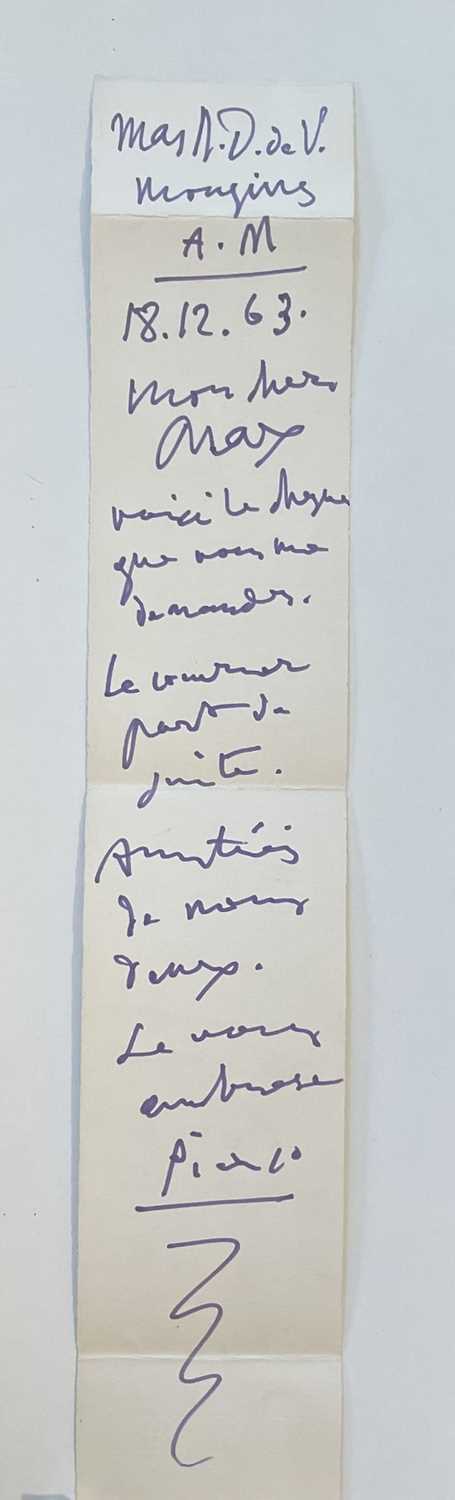 Mas N.D. de V.
Mougins
A. M
18.12.63.
Mon cher
Max
voici le chèque
que vous me
demandez.
Le courrier
part de
suite.
Amitiés
de nous
deux.
Je vous
embrasse
Picasso